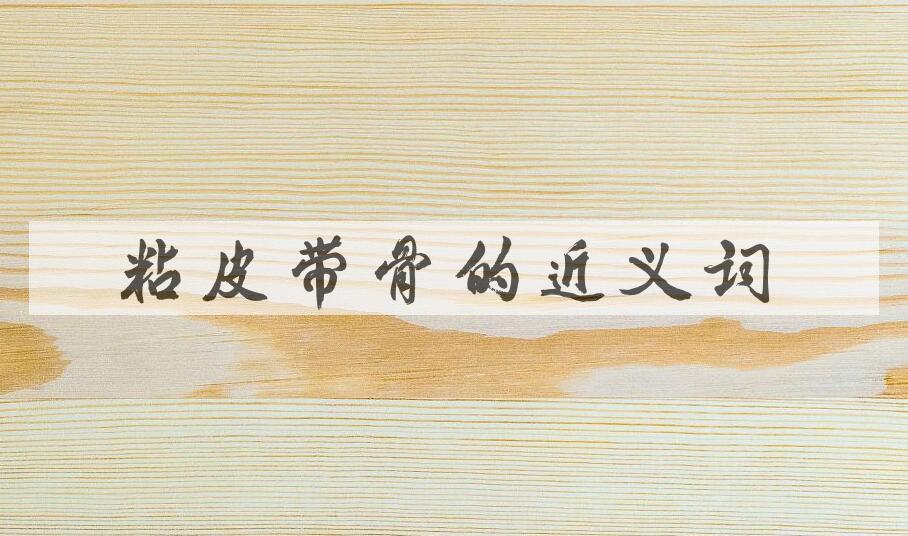 粘皮带骨的近义词